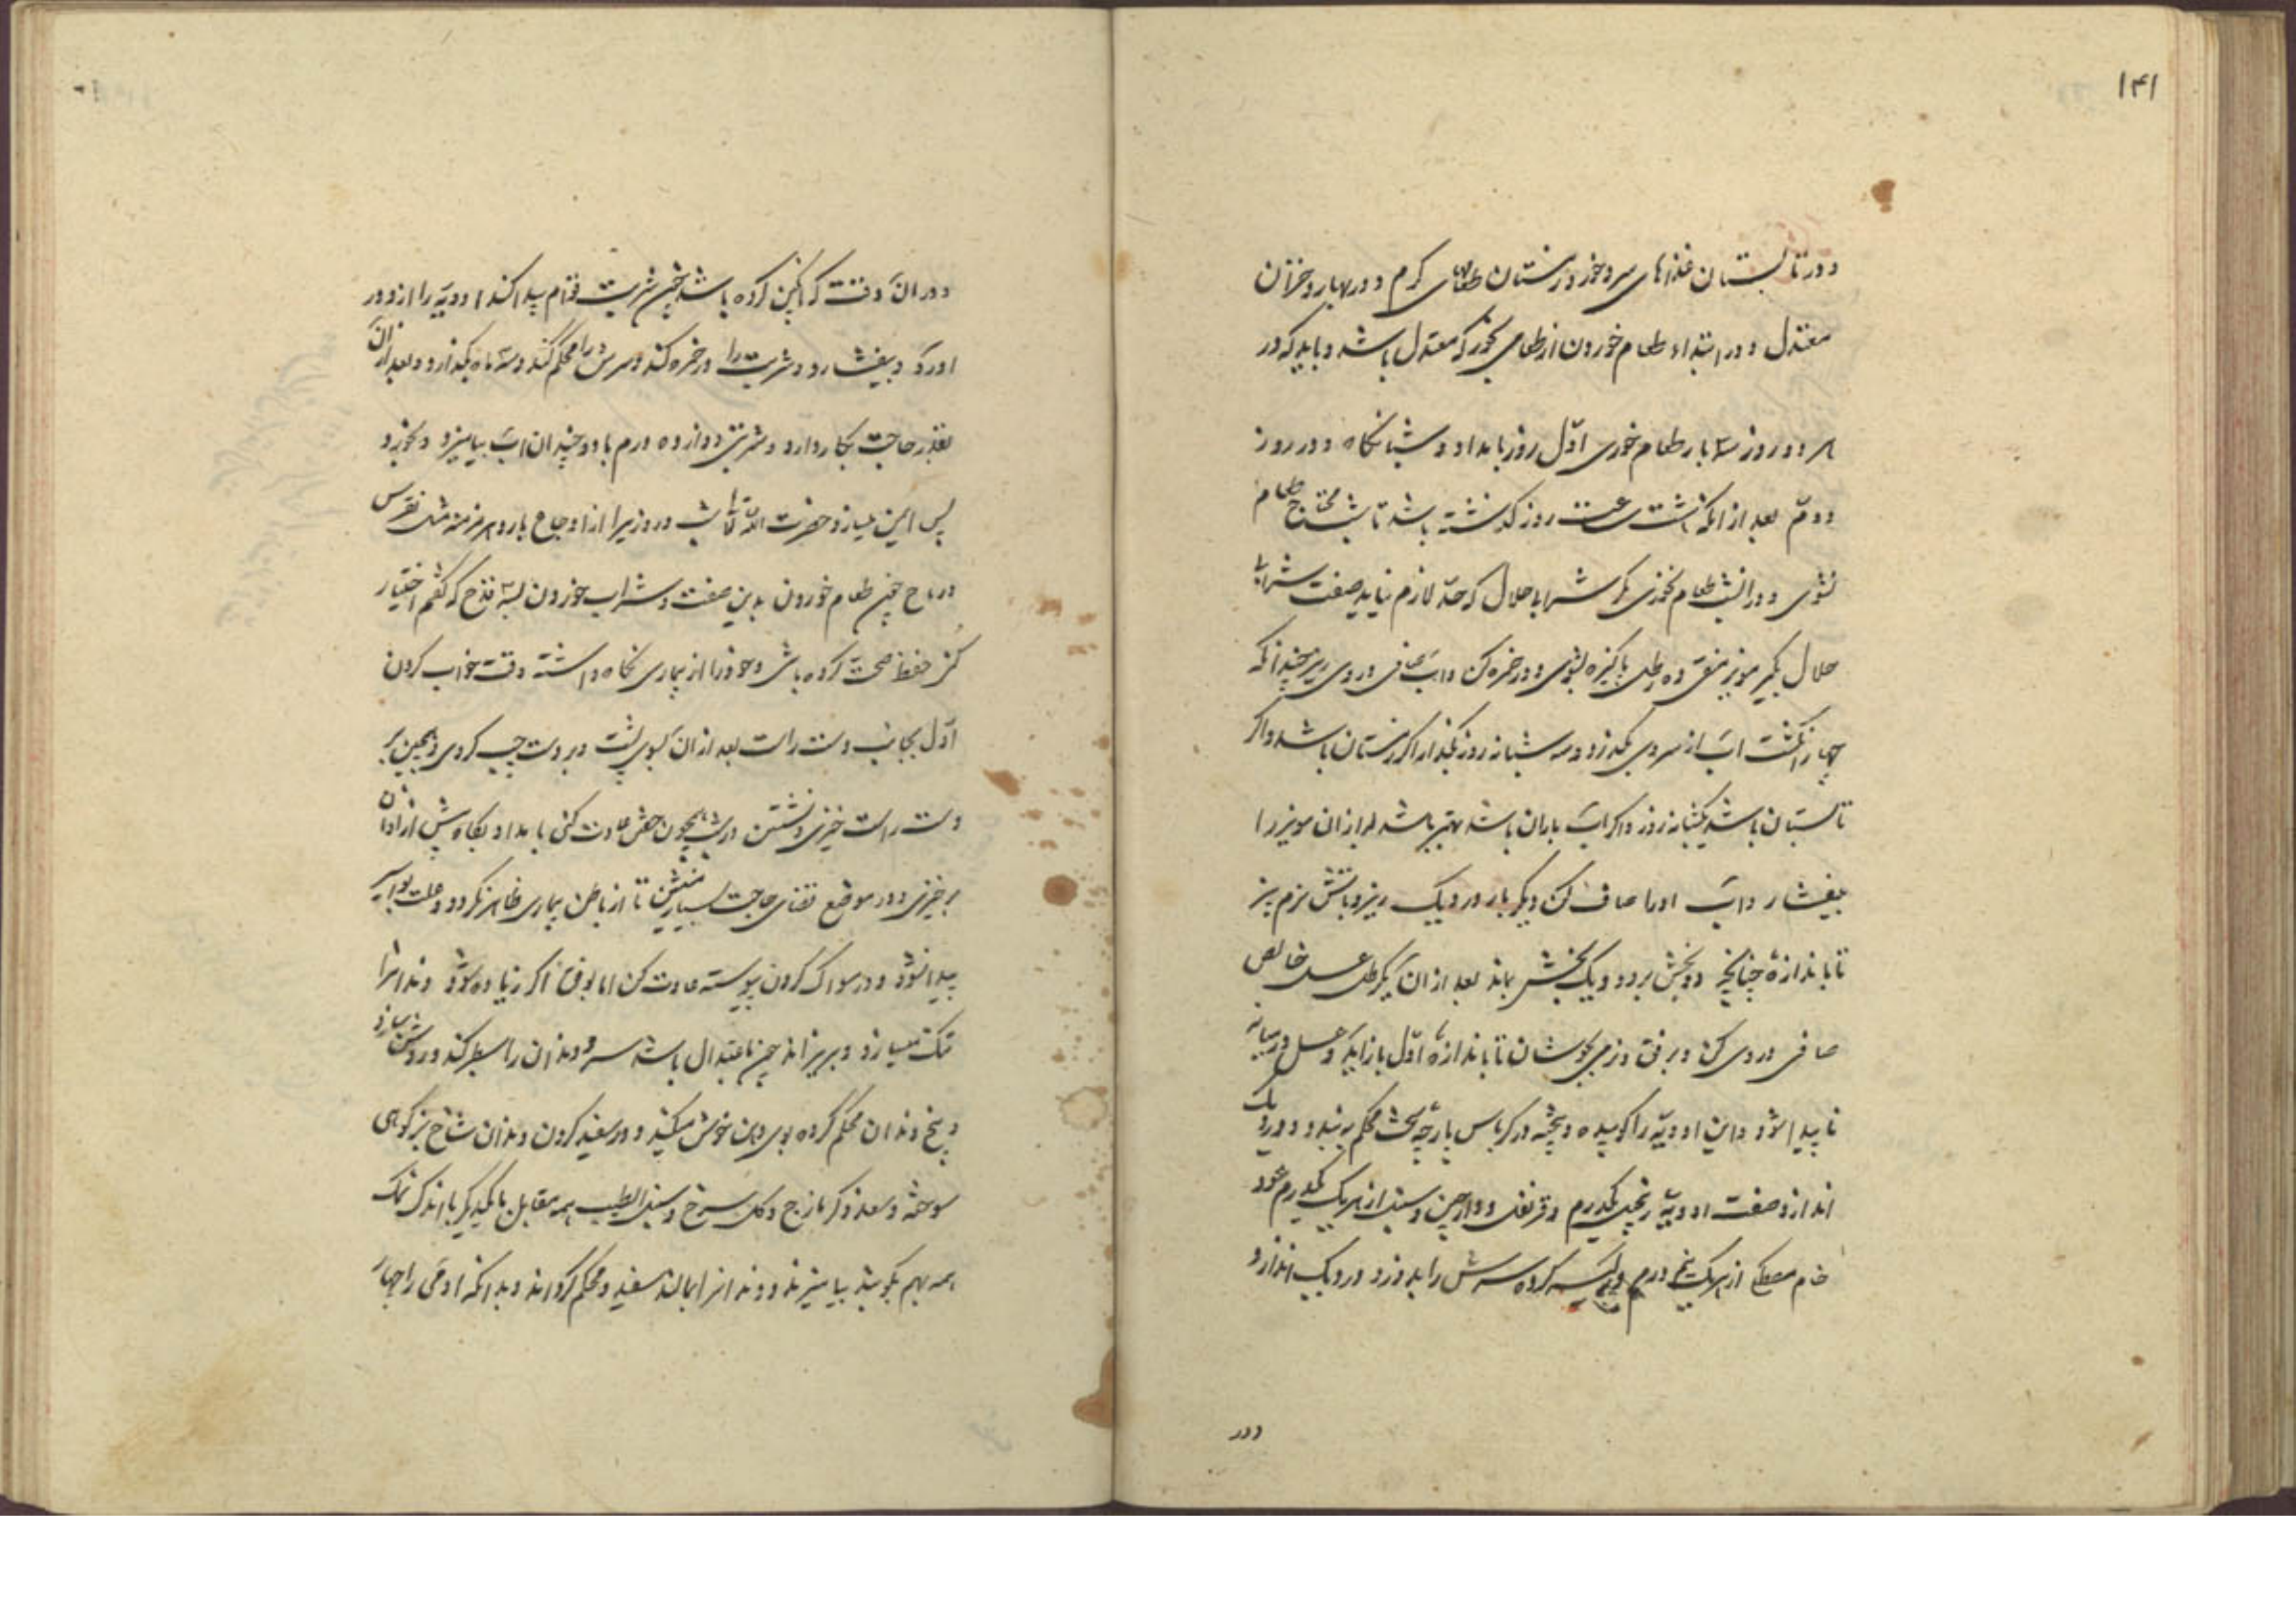 ۱۴۱
ودر تابستان غذاهای سرد خور و زمستان طعامهای گرم و در بهار و خزان
معتدل و در ابتداء طعام خوردن از طعامی بخور که معتدل باشد و باید که در
هر دو روز ۳ بار طعام خوری اوّل روز بامداد و شبانگاه و در روز
دوم بعد از انکه هشت ساعت روز گذشته باشد تا بشب محتاج طعام
نشوی و در انشب طعام نخوری مگر شرابا حلال که حدّ لازم نیاید صفت شرابا
حلال بگیر مویز منقی ده رطل پاکیزه بشوی و در خمره کن و آب صافی در وی ریز چندانکه
چهار انگشت آب از سر وی بگذرد و سه شبانه روز بگذار اگر زمستان باشد و اگر
تابستان باشد یکشبانه روز و اگر آب باران باشد بهتر باشد بعد از ان مویز را
بیفشار و آب او را صاف کن و دیگر بار در دیک ریز و باتش نرم پز
تا باندازهٔ چنانچه دو بخش برود و یک بخش بماند بعد از ان یکرطل عسل خالص
صافی در وی کن و برفق و نرمی بجوشان تا باندازهٔ اوّل باز اید و عسل در میانه
نا پیدا شود و این ادویّه را کوبیده و پخته در کرباس پارچهٔ سخت محکم بربندد و در دیک
اندازد صفت ادویّه زنجبیل یکدرم و قرنفل و دارچین و سنبل از هریک یکدرم عود
خام مصطکی از هریک پنج درم در کیسه کرده سرش را بدوزد و در دیک اندازد
ودر
ودر آن وقت که انکبین کرده باشد چون شربت قوام پیدا کند ادویّه را از دور
اورد و بیفشارد و شربت را در خمره کند و سرش را محکم کند و سه ماه بگذارد و بعد از آن
بقدر حاجت بکار دارد و شربتی دوازده درم با دو چندان آب بیامیزد و بخورد
پس ایمن میسازد حضرت الله تعالی شب و روز یرا از اوجاع بارد هر مزمنه مثل نقرس
و ریاح چون طعام خوردن بدین صفت و شراب خوردن بسه قدح که گفتم اختیار
کنی حفظ صحت کرده باشی و خود را از بیماری نگاه داشته وقت خواب کردن
اوّل بجانب دست راست بعد از ان بسوی پشت و بر دست چپ گردی و همچنین بر
دست راست خیزی و نشستن در شب همچون خفتن عادت کنی بامداد بگاه پیش از اذان
برخیزی و در موضع قضای حاجت بسیار منشین تا از باطن بیماری ظاهر نگردد و علت بواسیر
پیدا نشود و در مسواک کردن پیوسته عادت کن اما برفق اگر زیاده شود دندانرا
تنک میسازد و بریزاند چون باعتدال باشد سر دندان را سطبر کند و روشن سازد
و بیخ دندان محکم کرده بوی دهن خوش میکند و در سفید کردن دندان شاخ بز کوهی
سوخته و سعد و کزمازج و کل سرخ و سنبل الطیب همه مقابل یکدیگر با اندک نمک
همه بهم بکوبند بیامیزند و دندانرا بمالند سفید و محکم گرداند و بدانکه ادمی را چهار